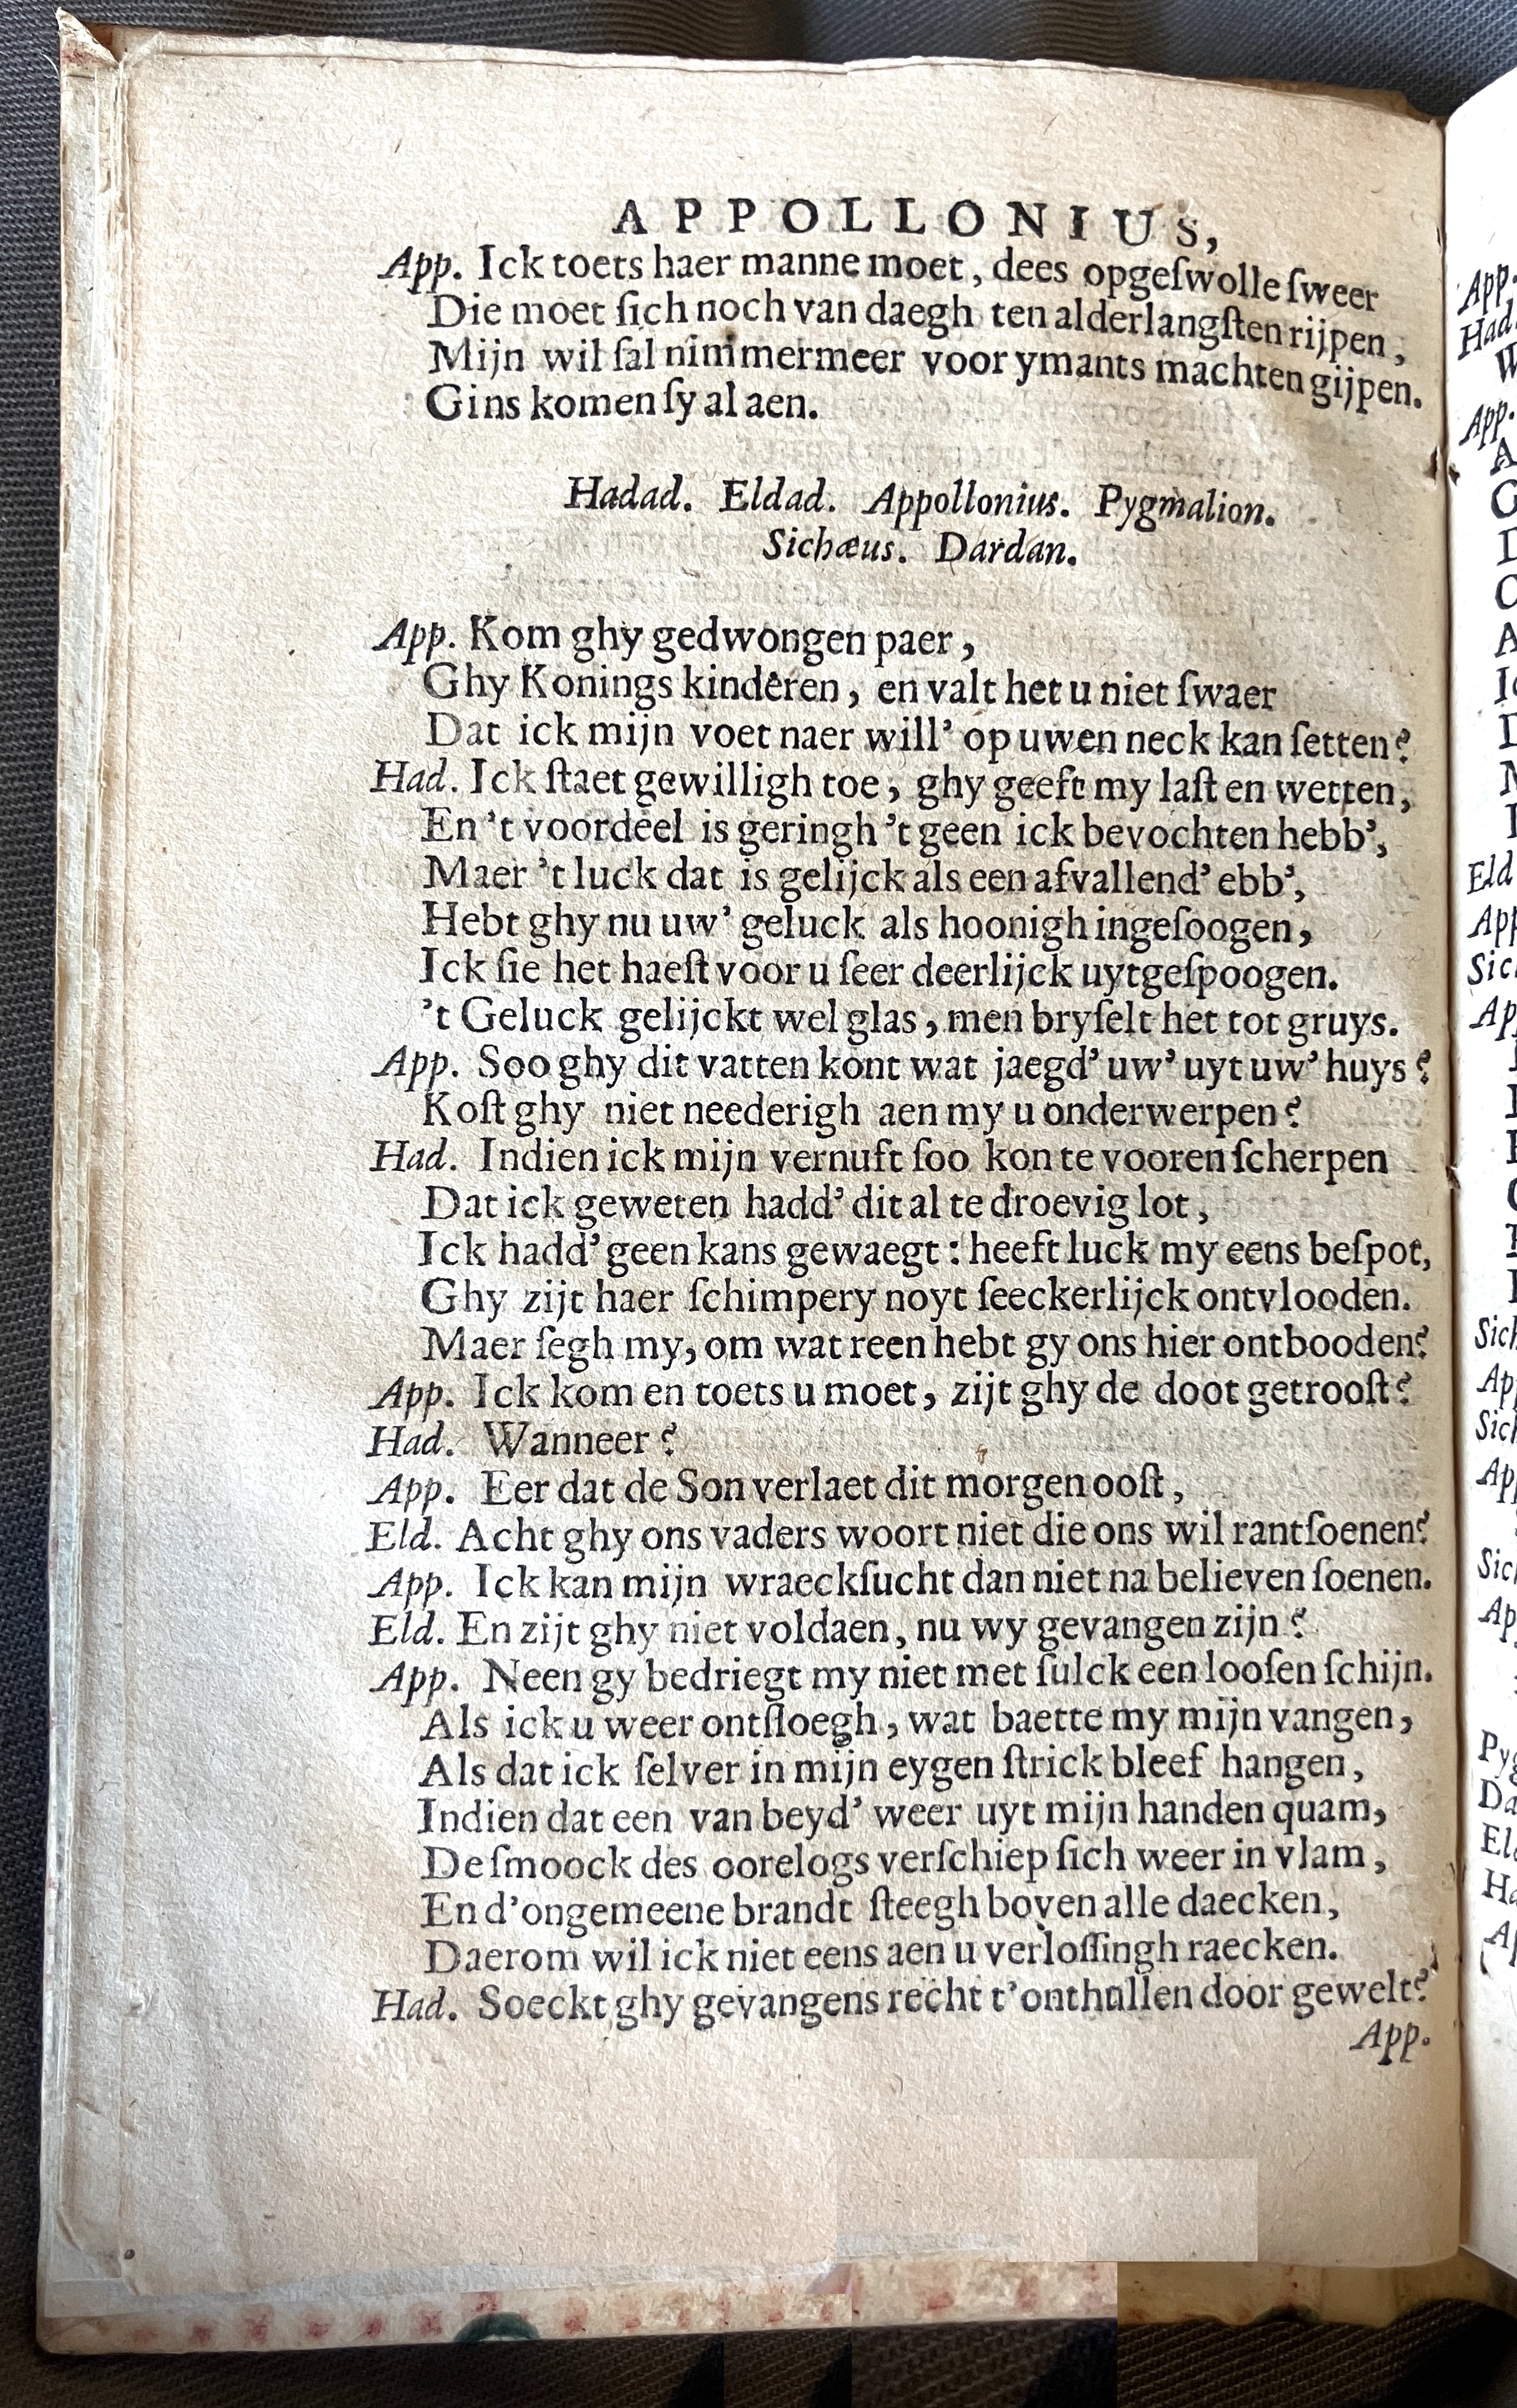 APPOLLONIUS,
App. Ick toets haer manne moet, dees opgeſwolle ſweer
Die moet ſich noch van daegh ten alderlangſten rijpen,
Mijn wil ſal nimmermeer voor ymants machten gijpen.
Gins komen ſy al aen.
Hadad. Eldad. Appollonius. Pygmalion.
Sichæus. Dardan.
App. Kom ghy gedwongen paer,
Ghy Konings kinderen, en valt het u niet ſwaer
Dat ick mijn voet naer will’ op uwen neck kan ſetten?
Had. Ick ſtaet gewilligh toe, ghy geeft my laſt en wetten,
En ’t voordeel is geringh ’t geen ick bevochten hebb’,
Maer ’t luck dat is gelijck als een afvallend’ ebb’,
Hebt ghy nu uw’ geluck als hoonigh ingeſoogen,
Ick ſie het haeſt voor u ſeer deerlijck uytgeſpoogen.
’t Geluck gelijckt wel glas, men bryſelt het tot gruys.
App. Soo ghy dit vatten kont wat jaegd’ uw’ uyt uw’ huys?
Koſt ghy niet neederigh aen my u onderwerpen?
Had. Indien ick mijn vernuft ſoo kon te vooren ſcherpen
Dat ick geweten hadd’ dit al te droevig lot,
Ick hadd’ geen kans gewaegt: heeft luck my eens beſpot,
Ghy zijt haer ſchimpery noyt ſeeckerlijck ontvlooden.
Maer ſegh my, om wat reen hebt gy ons hier ontbooden?
App. Ick kom en toets u moet, zijt ghy de doot getrooſt?
Had. Wanneer?
App. Eer dat de Son verlaet dit morgen ooſt,
Eld. Acht ghy ons vaders woort niet die ons wil rantſoenen?
App. Ick kan mijn wraeckſucht dan niet na believen ſoenen.
Eld. En zijt ghy niet voldaen, nu wy gevangen zijn?
App. Neen gy bedriegt my niet met ſulck een looſen ſchijn.
Als ick u weer ontſloegh, wat baette my mijn vangen,
Als dat ick ſelver in mijn eygen ſtrick bleef hangen,
Indien dat een van beyd’ weer uyt mijn handen quam,
De ſmoock des oorelogs verſchiep ſich weer in vlam,
En d’ongemeene brandt ſteegh boven alle daecken,
Daerom wil ick niet eens aen u verloſſingh raecken.
Had. Soeckt ghy gevangens recht t’onthullen door gewelt?
App.